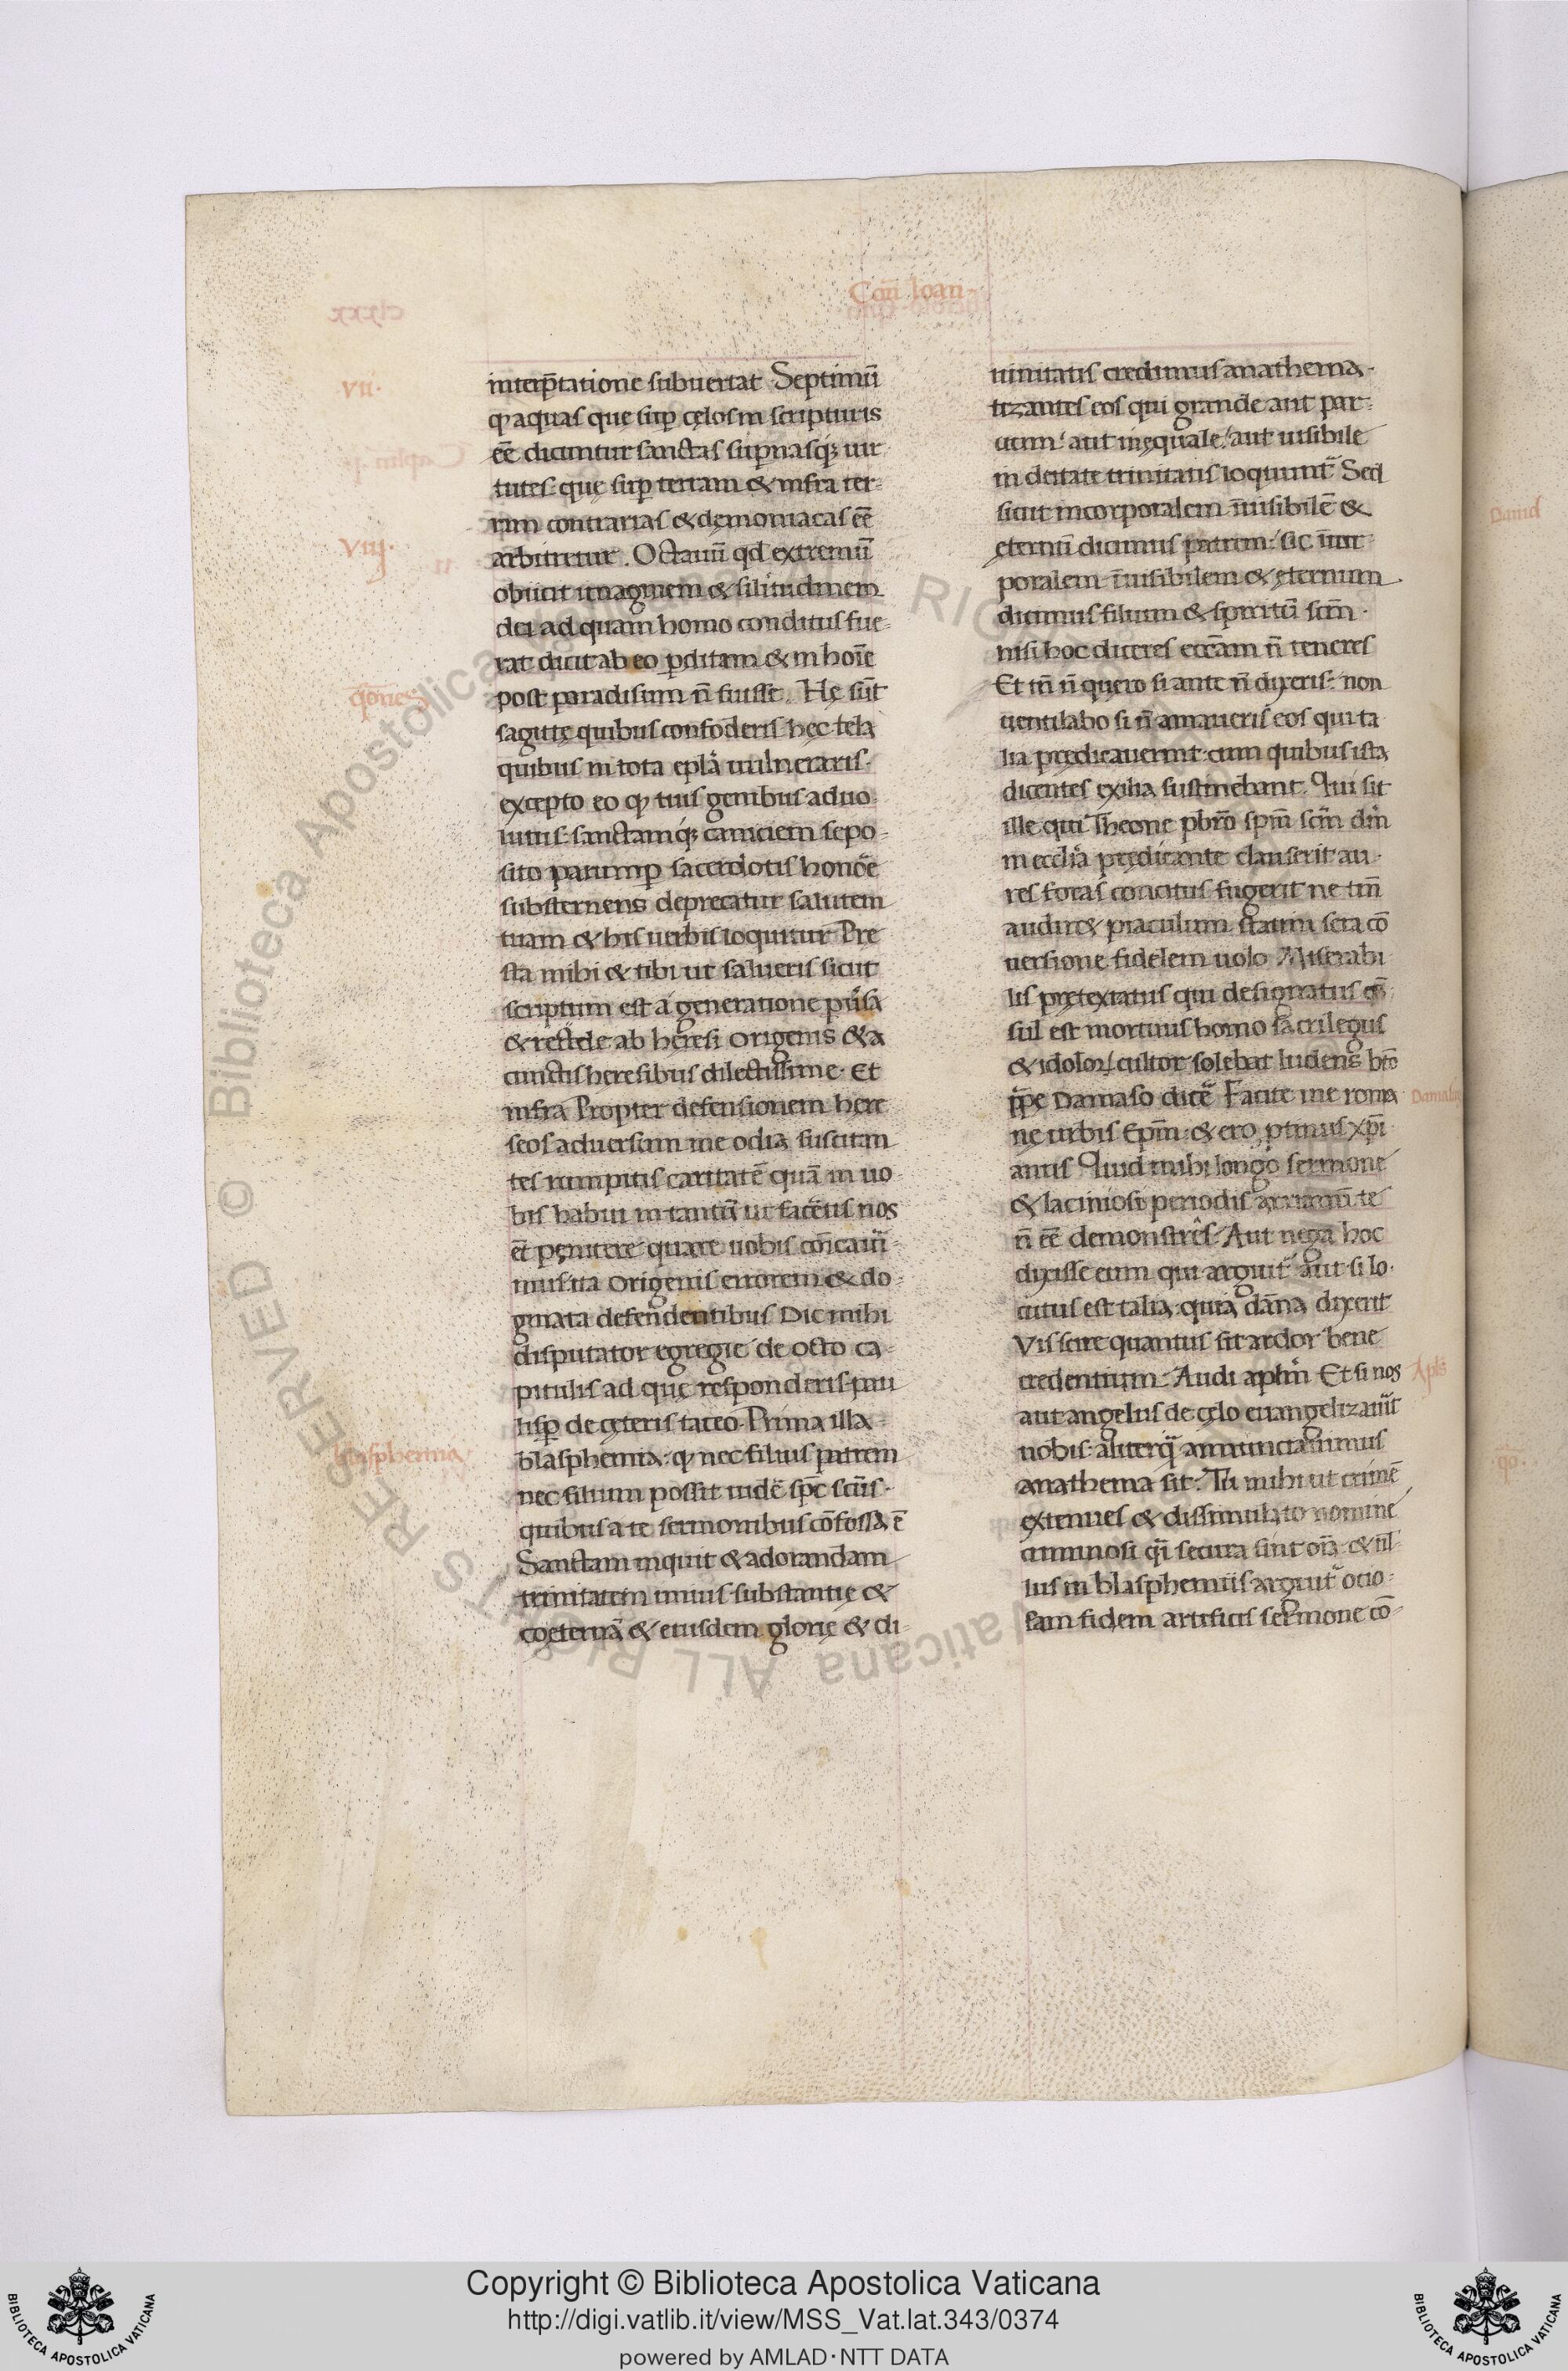 Con̄ Ioan-
vii·
interp̄tatione subuertat Septimū
ꝙ aquas que sup̄ cęlos in scripturis
eē dicuntur sanctas sup̄nasq; uir
tutes· quę sup̄ terram & infra ter-
ram contrarias & dęmoniacas eē
viij·
arbitretur. Octauū qd̄ extremū
obiicit imaginem & silitudinem
dei ad quam homo conditus fue-
rat dicit ab eo p̄ditam & in hoīe
qōnes
post paradisum n̄ fuisse. Hę sūt
sagittę quibus confoderis hęc tela
quibus in tota epl̄a uulneraris·
excepto eo ꝙ tuis genibus aduo-
lutus· sanctamq; caniciem sepo-
sito parump̄ sacerdotis honoře
substernens deprecatur salutem
tuam & his uerbis loquitur Pre
sta mihi & tibi ut salueris sicut
scriptum est a generatione pūsa
& recede ab hęresi Origenis & a
cunctis heresibus dilectissime· Et
infra Propter defensionem here
seos aduersum me odia suscitan
tes rumpitis caritatē quā in uo
bis habui in tantū ut facētis nos
et̄ pęnitere quare uobis cōicaui-
mus ita Origenis errorem & do-
gmata defendentibus Dic mihi
disputator egregie de octo ca-
pitulis ad quę responderis· pau
lisp̄ de cęteris taceo Prima illa
blasphemia
blasphemia· ꝙ nec filius patrem
nec filium possit uidē sp̄c scūs·
quibus a te sermonibus cōfossa ē
Sanctam inquit & adorandam
trinitatem unius substantię &
coęternā & eiusdem glorię & di-
uinitatis credimus anathema-
tizantes eos qui grande aut par-
uum· aut inęquale· aut uisibile
in deitate trinitatis loquunt̄ Sed
sicut incorporalem īuisibilē &
ęternū dicimus patrem· sic īcor-
poralem īuisibilem & ęternum
dicimus filium & spiritū scm̄·
nisi hoc diceres eccām n̄ teneres
Et tn̄ n̄ quero si ante n̄ dixeris· non
uentilabo si n̄ amaueris eos qui ta
lia prędicauerint· cum quibus ista
dicentes exilia sustinebant. Qui sit
ille qui Theone pbr̄o spm̄ scm̄ dm̄
in eccl̄ia prędicante clauserit au-
res foras concitus fugerit ne tm̄
audiret piaculum statim sera cō
uersione fidelem uolo Miserabi
lis pretextatus qui designatus cō
sul est mortuus homo sacrilegus
& idoloꝝ cultor solebat ludens bt̄o
pp̄e Damaso dicē Facite me roma
Damasus
ne urbis Epm̄· & ero ptinus xp̄i
anus Quid mihi longo sermone
& laciniosi periodis arrianū te
n̄ eē demonstres· Aut nega hoc
dixisse eum qui arguit̄ aut si lo-
cutus est talia· quia dāna dixerit
Vis scire quantus sit ardor bene
credentium· Audi aplm̄ Et si nos
Apl's
aut angelus de cęlo euangelizauīt
nobis· aliter q̄ annunciauimus
anathema sit· Tu mihi ut crimē
extenues & dissimulato nomine
criminosi q̄si secura sint oīa & nl̄-
lus in blasphemiis arguit̄ ocio-
sam fidem artificis sermone cō-
Dauid
qō·
Copyright © Biblioteca Apostolica Vaticana
http://digi.vatlib.it/view/MSS_Vat.lat.343/0374
powered by AMLAD·NTT DATA